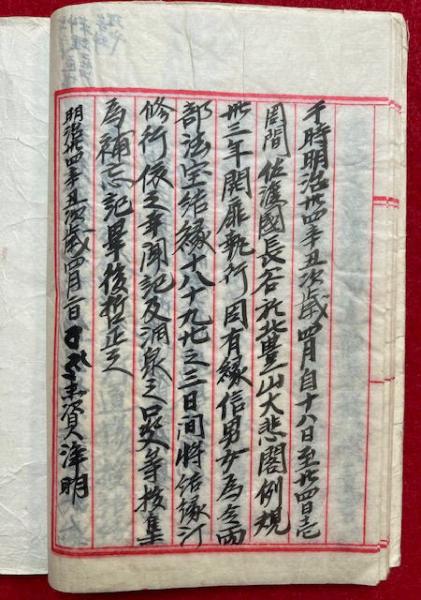 于時明治卅四辛丑次歳四月自十八日至卅四日壱
周間佐渡國長谷於北豊山大悲閣例規
卅三年開扉執行因有縁信男女為令両
部法宝結縁十八十九廿之三日間将結縁灌
修行依之弄聞記及洞泉之口受等抜集
為補忘記畢後哲正之
明治卅四年丑次歳四月二日 資人淳明